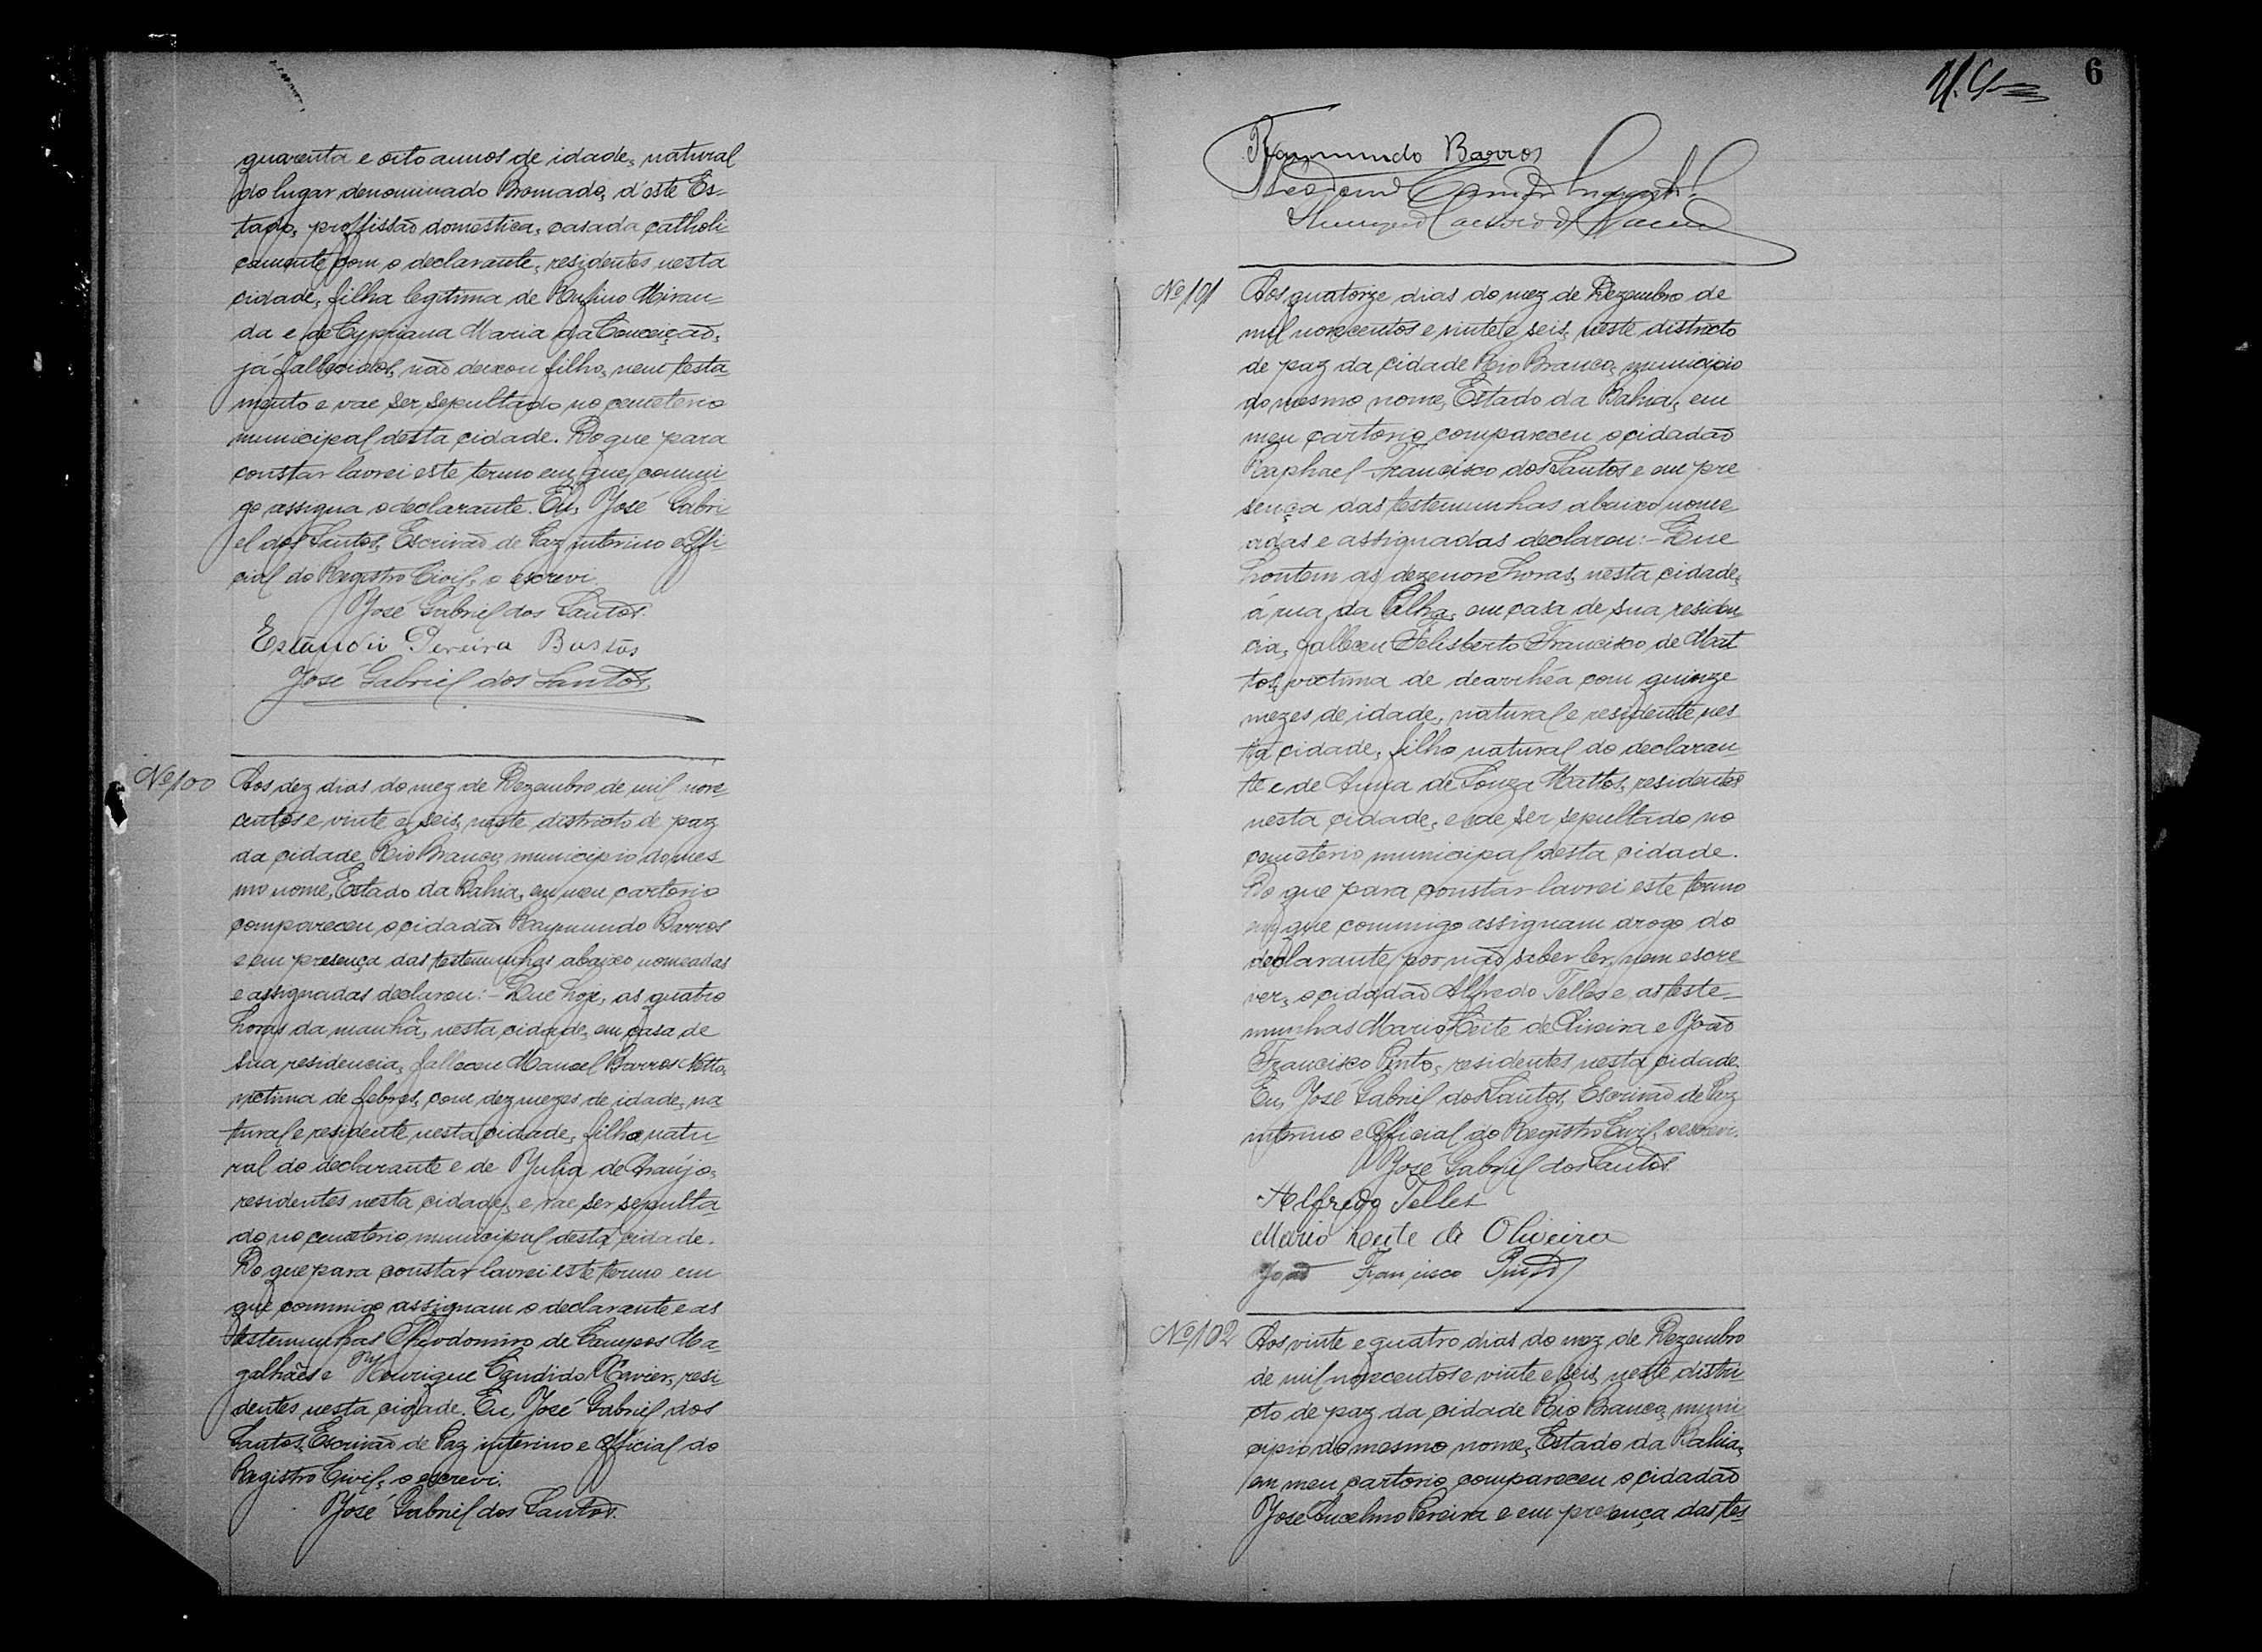 quarenta e oito annos de idade, natural
do lugar denominado Bromado, d'este Es-
tado, proffissão domestica, casada catholi-
camente com o declarante, residentes nesta
cidade, filha legitima de Rufino Miran-
da e de Cypriana Maria da Conceição,
já fallecidos, não deixou filho, nem testa-
mento e vae ser sepultado no cemeterio
municipal desta cidade. Do que para
constar lavrei este termo em que commi-
go assigna o declarante. Eu, José Gabri-
el dos Santos, Escrivão de Paz interino e Offi-
cial do Registro Civil, o escrevi
José Gabriel dos Santos.
Pereira Bastos
José Gabriel dos Santos
Nº 100
Aos dez dias do mez de Dezembro de mil nove-
centos e vinte e seis, neste districto de paz
da cidade Rio Branco, municipio do mes-
mo nome, Estado da Bahia, em meu cartorio
compareceu o cidadão Raymundo Barros
e em presença das testemunhas abaixo nomeadas
e assignadas declarou:- Que hoje, as quatro
horas da manhã, nesta cidade, em casa de
sua residencia, falleceu Manoel Barros Netto,
victima de febres, com dez mezes de idade, na-
tural e residente nesta cidade, filho natu-
ral do declarante e de Julia de Araújo,
residentes nesta cidade, e vae ser sepulta-
do no cemeterio municipal desta cidade.
Do que para constar lavrei este termo em
que commigo assignam o declarante e as
testemunhas Theodomiro de Campos Ma-
galhães e Henrique Candido Xavier, resi-
dentes nesta cidade. Eu, José Gabriel dos
Santos, Escrivão de Paz interino e Official do
Registro Civil, o escrevi.
José Gabriel dos Santos.
6
Raymundo Barros
Nº 101
Aos quatorze dias do mez de Dezembro de
mil novecentos e vinte e seis, neste districto
de paz da cidade Rio Branco, municipio
do mesmo nome, Estado da Bahia, em
meu cartorio compareceu o cidadão
Raphael Francisco dos Santos e em pre-
sença das testemunhas abaixo nome-
adas e assignadas declarou:- Que
hontem as dezenove horas, nesta cidade,
á rua da Palha, em casa de sua residen-
cia, falleceu Felisberto Francisco de Mat-
tos, victima de dearrhéa com quinze
mezes de idade, natural e residente nes-
ta cidade, filho natural do declaran-
te e de Anna de Souza Mattos, residentes
nesta cidade, e vae ser sepultado no
cemeterio municipal desta cidade.
Do que para constar lavrei este termo
em que commigo assignam arogo do
declarante por não saber ler, nem escre-
ver, o cidadão Alfredo Telles e as teste-
munhas Mario Leite de Oliveira e João
Francisco Pinto, residentes nesta cidade.
Eu, José Gabriel dos Santos, Escrivão de Paz
interino e Official do Registro Civil, o escrevi.
José Gabriel dos Santos
Alfredo Telles
Mario Leite de Oliveira
João Francisco Pinto
Nº 102
Aos vinte e quatro dias do mez de Dezembro
de mil novecentos e vinte e seis, neste distri-
cto de paz da cidade Rio Branco, muni-
cipio do mesmo nome, Estado da Bahia,
em meu cartorio compareceu o cidadão
José Ancelmo Pereira e em presença das tes-